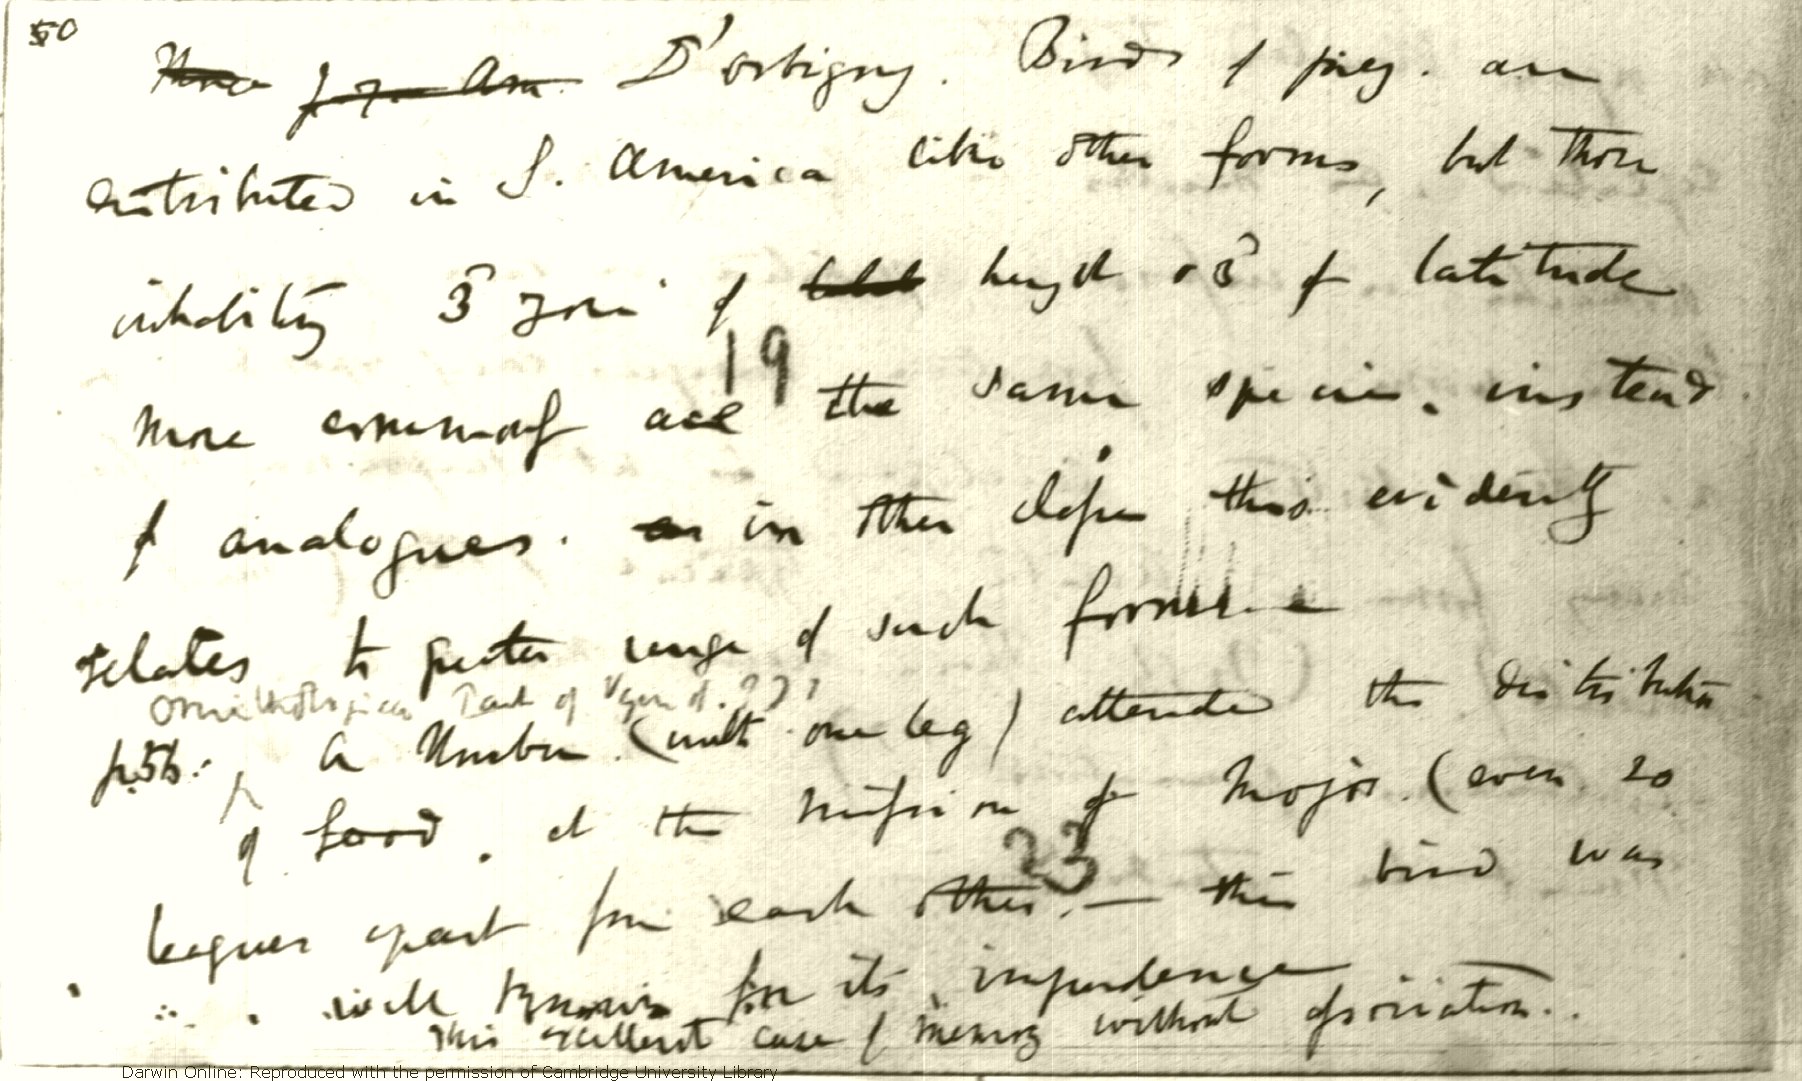 50
D'orbigny. Birds of prey. are
distributed in S. America like other forms, but those
inhabiting 3d zone of height & 3d of latitude
19
more commonly are the same species. instead
of analogues. in other classes this evidently
relates to greater range of such forms
Ornithological Part of
p.
A Number (with one leg) attended the distribution
of food. at the mission of Mojos. (even 20
23
leagues apart from each other. — this bird was
well known for its impudence
This excellent case of memory without association..
Darwin Online: Reproduced with the permission of Cambridge University Library